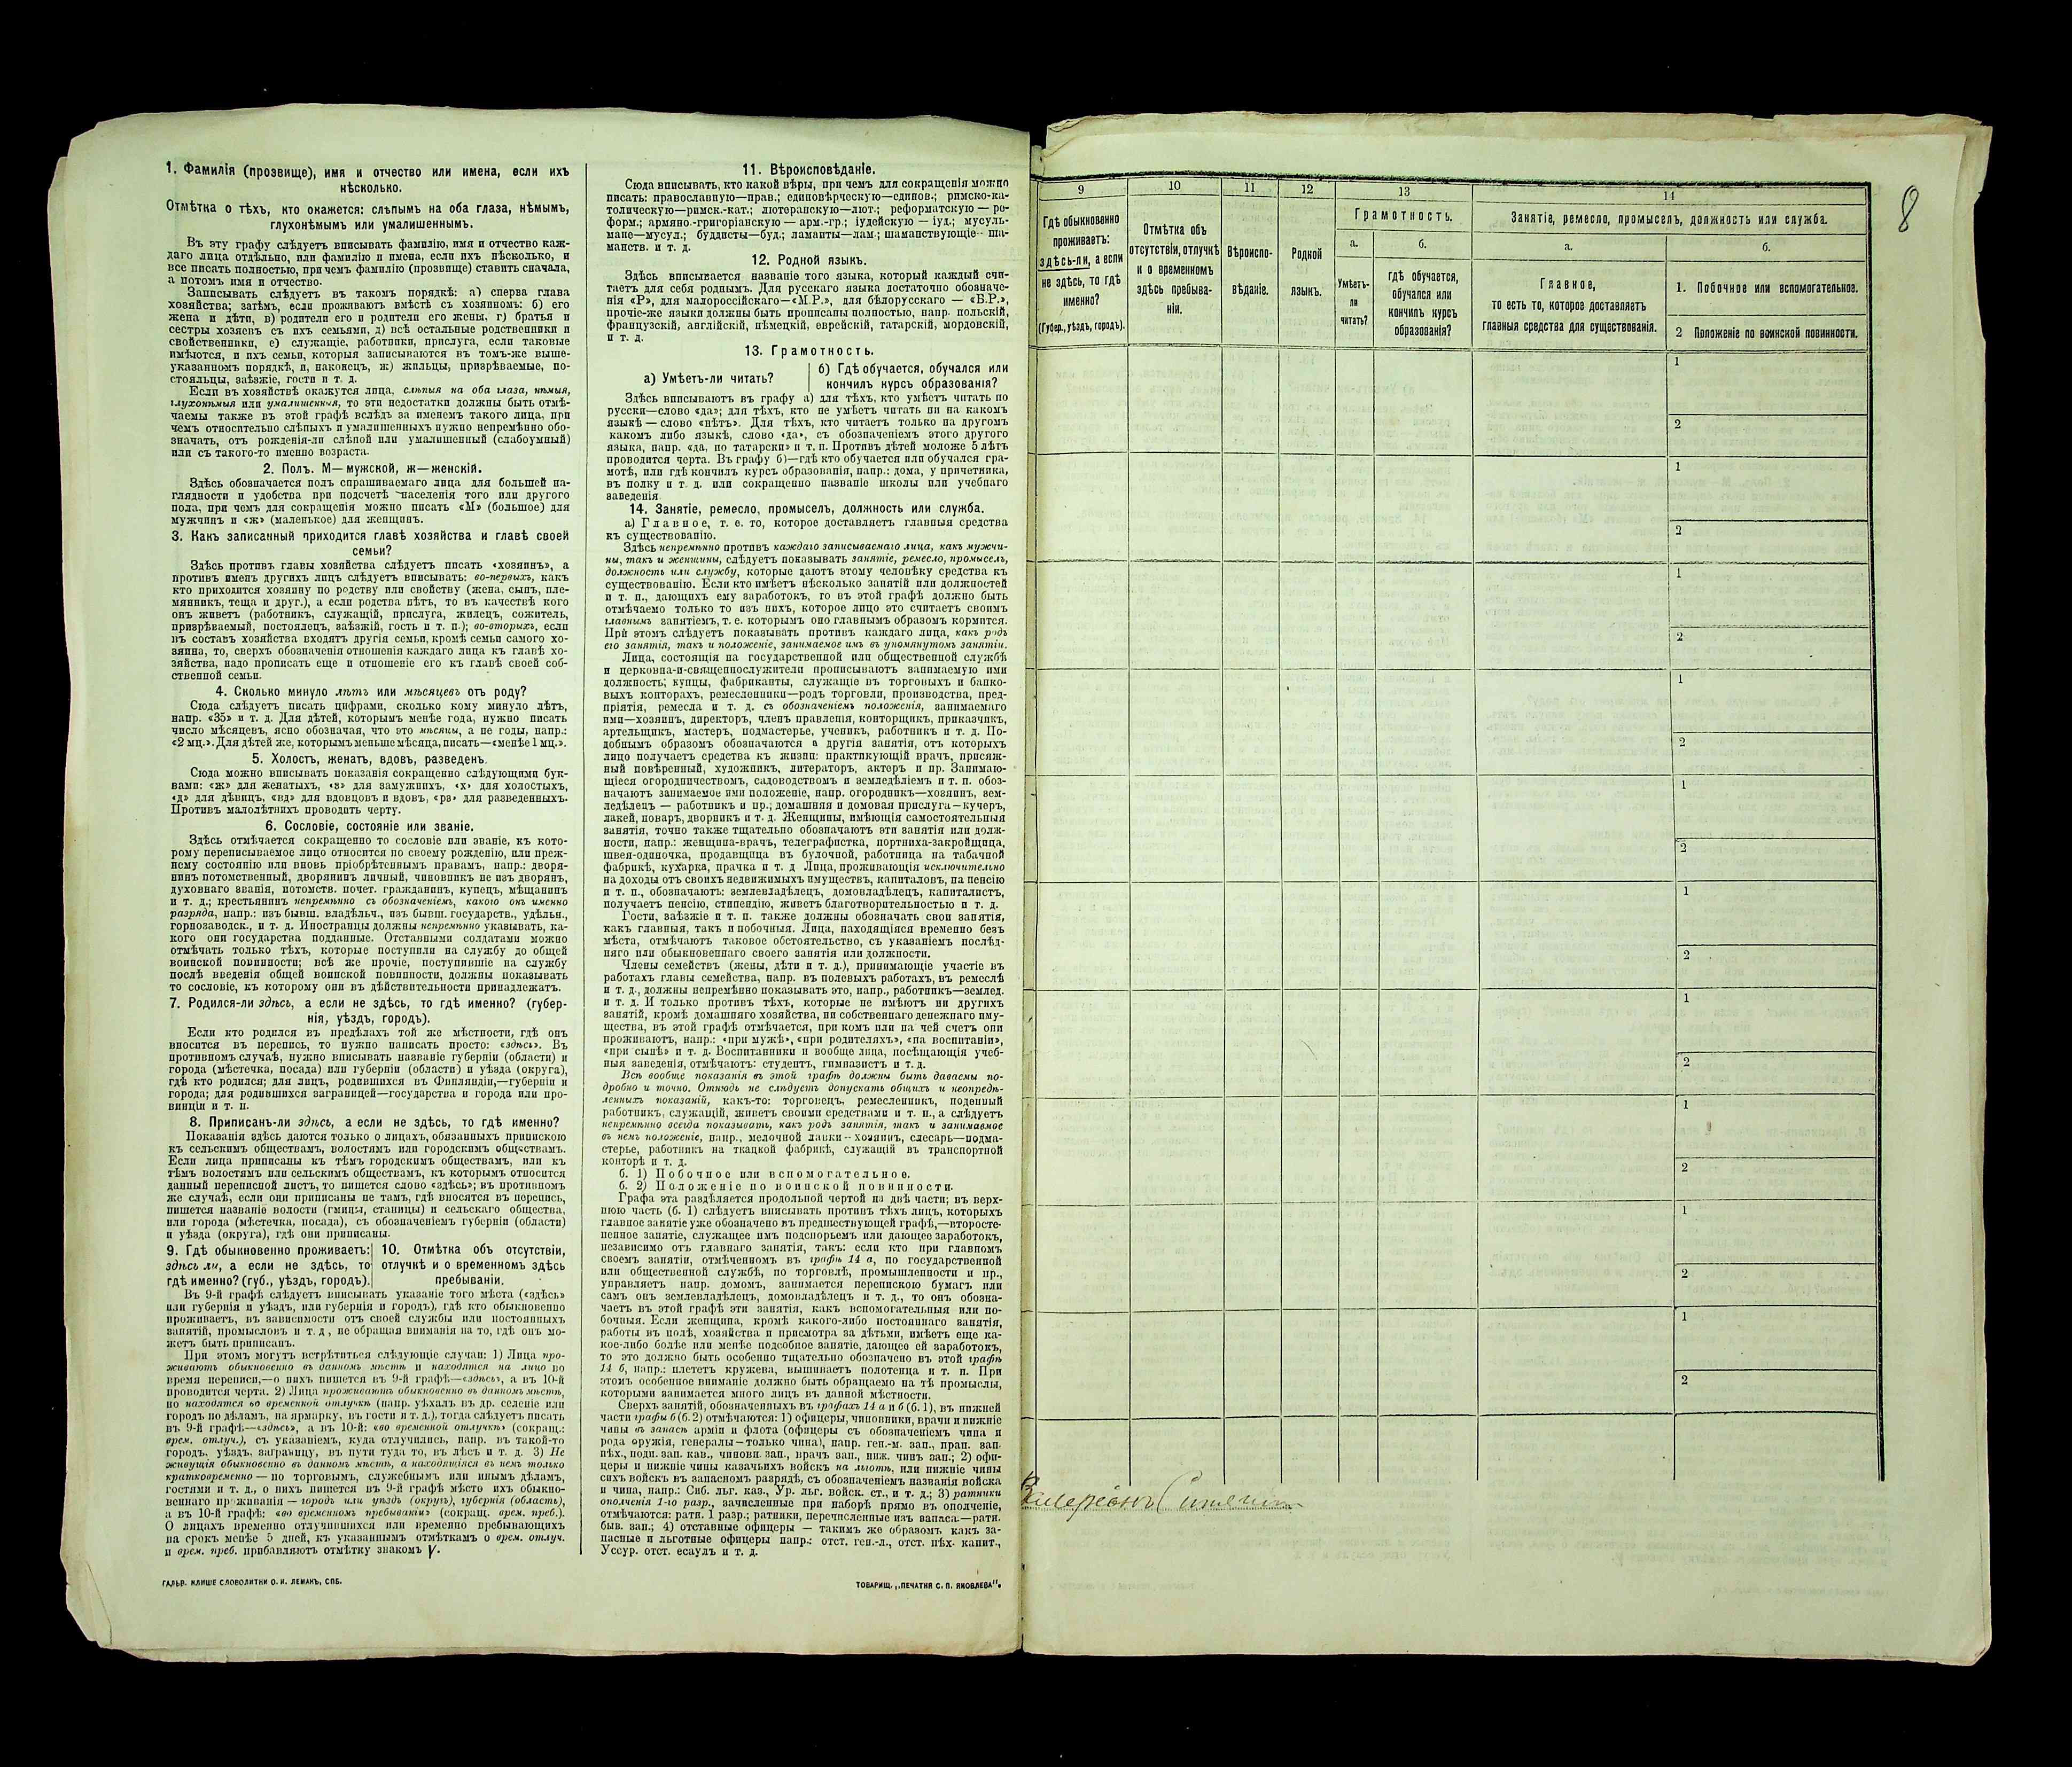 1. Фамилія (прозвище), имя и отчество или имена, если ихъ
нѣсколько.
Отмѣтка о тѣхъ, кто окажется: слѣпымъ на оба глаза, нѣмымъ,
глухонѣмымъ или умалишеннымъ.
Въ эту графу слѣдуетъ вписывать фамилію, имя и отчество каж-
даго лица отдѣльно, или фамилію и имена, если ихъ нѣсколько, и
все писать полностью, при чемъ фамилію (прозвище) ставить сначала,
а потомъ имя и отчество.
Записывать слѣдуетъ въ такомъ порядкѣ: а) сперва глава
хозяйства; затѣмъ, если проживаютъ вмѣстѣ съ хозяиномъ: б) его
жена и дѣти, в) родители его и родители его жены, г) братья и
сестры хозяевъ съ ихъ семьями, д) всѣ остальные родственники и
свойственники, е) служащіе, работники, прислуга, если таковые
имѣются, и ихъ семьи, которыя записываются въ томъ-же выше-
указанномъ порядкѣ, и, наконецъ, ж) жильцы, призрѣваемые, по-
стояльцы, заѣзжіе, гости и т. д.
Если въ хозяйствѣ окажутся лица, слѣпыя на оба глаза, нѣмыя,
глухонѣмыя или умалишенныя, то эти недостатки должны быть отмѣ-
чаемы также въ этой графѣ вслѣдъ за именемъ такого лица, при
чемъ относительно слѣпыхъ и умалишенныхъ нужно непремѣнно обо-
значать, отъ рожденія-ли слѣпой или умалишенный (слабоумный)
или съ такого-то именно возраста.
2. Полъ. М—мужской, ж—женскій.
Здѣсь обозначается полъ спрашиваемаго лица для большей на-
глядности и удобства при подсчетѣ населенія того или другого
пола, при чемъ для сокращенія можно писать «М» (большое) для
мужчинъ и «ж» (маленькое) для женщинъ.
3. Какъ записанный приходится главѣ хозяйства и главѣ своей
семьи?
Здѣсь противъ главы хозяйства слѣдуетъ писать «хозяинъ», а
противъ именъ другихъ лицъ слѣдуетъ вписывать: во-первыхъ, какъ
кто приходится хозяину по родству или свойству (жена, сынъ, пле-
мянникъ, теща и друг.), а если родства нѣтъ, то въ качествѣ кого
онъ живетъ (работникъ, служащій, прислуга, жилецъ, сожитель,
призрѣваемый, постоялецъ, заѣзжій, гость и т. п.); во-вторыхъ, если
въ составъ хозяйства входятъ другія семьи, кромѣ семьи самого хо-
зяина, то, сверхъ обозначенія отношенія каждаго лица къ главѣ хо-
зяйства, надо прописать еще и отношеніе его къ главѣ своей соб-
ственной семьи.
4. Сколько минуло лѣтъ или мѣсяцевъ отъ роду?
Сюда слѣдуетъ писать цифрами, сколько кому минуло лѣтъ,
напр. «35» и т. д. Для дѣтей, которымъ менѣе года, нужно писать
число мѣсяцевъ, ясно обозначая, что это мѣсяцы, а не годы, напр.:
«2 мц.». Для дѣтей же, которымъ меньше мѣсяца, писать—«менѣе 1 мц.».
5. Холостъ, женатъ, вдовъ, разведенъ.
Сюда можно вписывать показанія сокращенно слѣдующими бук-
вами: «ж» для женатыхъ, «з» для замужнихъ, «х» для холостыхъ,
«д» для дѣвицъ, «вд» для вдовцовъ и вдовъ, «рз» для разведенныхъ.
Противъ малолѣтнихъ проводить черту.
6. Сословіе, состояніе или званіе.
Здѣсь отмѣчается сокращенно то сословіе или званіе, къ кото-
рому переписываемое лицо относится по своему рожденію, или преж-
нему состоянію или вновь пріобрѣтеннымъ правамъ, напр.: дворя-
нинъ потомственный, дворянинъ личный, чиновникъ не изъ дворянъ,
духовнаго званія, потомств. почет. гражданинъ, купецъ, мѣщанинъ
и т. д.; крестьянинъ непремѣнно съ обозначеніемъ, какого онъ именно
разряда, напр.: изъ бывш. владѣльч., изъ бывш. государств., удѣльн.,
горнозаводск., и т. д. Иностранцы должны непремѣнно указывать, ка-
кого они государства подданные. Отставными солдатами можно
отмѣчать только тѣхъ, которые поступили на службу до общей
воинской повинности; всѣ же прочіе, поступившіе на службу
послѣ введенія общей воинской повинности, должны показывать
то сословіе, къ которому они въ дѣйствительности принадлежатъ.
7. Родился-ли здѣсь, а если не здѣсь, то гдѣ именно? (губер-
нія, уѣздъ, городъ).
Если кто родился въ предѣлахъ той же мѣстности, гдѣ онъ
вносится въ перепись, то нужно написать просто: «здѣсь». Въ
противномъ случаѣ, нужно вписывать названіе губерніи (области) и
города (мѣстечка, посада) или губерніи (области) и уѣзда (округа),
гдѣ кто родился; для лицъ, родившихся въ Финляндіи,—губерніи и
города; для родившихся заграницей—государства и города или про-
винціи и т. п.
8. Приписанъ-ли здѣсь, а если не здѣсь, то гдѣ именно?
Показанія здѣсь даются только о лицахъ, обязанныхъ припискою
къ сельскимъ обществамъ, волостямъ или городскимъ обществамъ.
Если лица приписаны къ тѣмъ городскимъ обществамъ, или къ
тѣмъ волостямъ или сельскимъ обществамъ, къ которымъ относится
данный переписной листъ, то пишется слово «здѣсь»; въ противномъ
же случаѣ, если они приписаны не тамъ, гдѣ вносятся въ перепись,
пишется названіе волости (гмины, станицы) и сельскаго общества,
или города (мѣстечка, посада), съ обозначеніемъ губерніи (области)
и уѣзда (округа), гдѣ они приписаны.
9. Гдѣ обыкновенно проживаетъ:
здѣсь ли, а если не здѣсь, то
гдѣ именно? (губ., уѣздъ, городъ).
10. Отмѣтка объ отсутствіи,
отлучкѣ и о временномъ здѣсь
пребываніи.
Въ 9-й графѣ слѣдуетъ вписывать указаніе того мѣста («здѣсь»
или губернія и уѣздъ, или губернія и городъ), гдѣ кто обыкновенно
проживаетъ, въ зависимости отъ своей службы или постоянныхъ
занятій, промысловъ и т. д., не обращая вниманія на то, гдѣ онъ мо-
жетъ быть приписанъ.
При этомъ могутъ встрѣтиться слѣдующіе случаи: 1) Лица про-
живаютъ обыкновенно въ данномъ мѣстѣ и находятся на лицо во
время переписи,—о нихъ пишется въ 9-й графѣ—«здѣсь», а въ 10-й
проводится черта. 2) Лица проживаютъ обыкновенно въ данномъ мѣстѣ,
но находятся во временной отлучкѣ (напр. уѣхалъ въ др. селеніе или
городъ по дѣламъ, на ярмарку, въ гости и т. д.), тогда слѣдуетъ писать
въ 9-й графѣ—«здѣсь», а въ 10-й: «во временной отлучкѣ» (сокращ.:
врем. отлуч.), съ указаніемъ, куда отлучились, напр. въ такой-то
городъ, уѣздъ, заграницу, въ пути туда то, въ лѣсъ и т. д. 3) Не
живущія обыкновенно въ данномъ мѣстѣ, а находящіяся въ немъ только
кратковременно — по торговымъ, служебнымъ или инымъ дѣламъ,
гостями и т. д., о нихъ пишется въ 9-й графѣ мѣсто ихъ обыкно-
веннаго проживанія — городъ или уѣздъ (округъ), губернія (область),
а въ 10-й графѣ: «во временномъ пребываніи» (сокращ. врем. преб.).
О лицахъ временно отлучившихся или временно пребывающихъ
на срокъ менѣе 5 дней, къ указаннымъ отмѣткамъ о врем. отлуч.
и врем. преб. прибавляютъ отмѣтку знакомъ V.
ГАЛЬВ. КЛИШЕ СЛОВОЛИТНИ О. И. ЛЕМАНЪ, СПБ.
11. Вѣроисповѣданіе.
Сюда вписывать, кто какой вѣры, при чемъ для сокращенія можно
писать: православную—прав.; единовѣрческую—единов.; римско-ка-
толическую—римск.-кат.; лютеранскую—лют.; реформатскую — ре-
форм.; армяно.-григоріанскую — арм.-гр.; іудейскую — іуд.; мусуль-
мане—мусул.; буддисты—буд.; ламаиты—лам.; шаманствующіе— ша-
манств. и т. д.
12. Родной языкъ.
Здѣсь вписывается названіе того языка, который каждый счи-
таетъ для себя роднымъ. Для русскаго языка достаточно обозначе-
нія «Р», для малороссійскаго—«М.Р.», для бѣлорусскаго — «Б.Р.»,
прочіе-же языки должны быть прописаны полностью, напр. польскій,
французскій, англійскій, нѣмецкій, еврейскій, татарскій, мордовскій,
и т. д.
13. Грамотность.
а) Умѣетъ-ли читать?
б) Гдѣ обучается, обучался или
кончилъ курсъ образованія?
Здѣсь вписываютъ въ графу а) для тѣхъ, кто умѣетъ читать по
русски—слово «да»; для тѣхъ, кто не умѣетъ читать ни на какомъ
языкѣ — слово «нѣтъ». Для тѣхъ, кто читаетъ только на другомъ
какомъ либо языкѣ, слово «да», съ обозначеніемъ этого другого
языка, напр. «да, по татарски» и т. п. Противъ дѣтей моложе 5 лѣтъ
проводится черта. Въ графу б)—гдѣ кто обучается или обучался гра-
мотѣ, или гдѣ кончилъ курсъ образованія, напр.: дома, у причетника,
въ полку и т. д. или сокращенно названіе школы или учебнаго
заведенія.
14. Занятіе, ремесло, промыселъ, должность или служба.
а) Главное, т. е. то, которое доставляетъ главныя средства
къ существованію.
Здѣсь непремѣнно противъ каждаго записываемаго лица, какъ мужчи-
ны, такъ и женщины, слѣдуетъ показывать занятіе, ремесло, промыселъ,
должность или службу, которые даютъ этому человѣку средства къ
существованію. Если кто имѣетъ нѣсколько занятій или должностей
и т. п., дающихъ ему заработокъ, то въ этой графѣ должно быть
отмѣчаемо только то изъ нихъ, которое лицо это считаетъ своимъ
главнымъ занятіемъ, т. е. которымъ оно главнымъ образомъ кормится.
При этомъ слѣдуетъ показывать противъ каждаго лица, какъ родъ
его занятія, такъ и положеніе, занимаемое имъ въ упомянутомъ занятіи.
Лица, состоящія на государственной или общественной службѣ
и церковно-и-священнослужители прописываютъ занимаемую ими
должность; купцы, фабриканты, служащіе въ торговыхъ и банко-
выхъ конторахъ, ремесленники—родъ торговли, производства, пред-
пріятія, ремесла и т. д. съ обозначеніемъ положенія, занимаемаго
ими—хозяинъ, директоръ, членъ правленія, конторщикъ, приказчикъ,
артельщикъ, мастеръ, подмастерье, ученикъ, работникъ и т. д. По-
добнымъ образомъ обозначаются и другія занятія, отъ которыхъ
лицо получаетъ средства къ жизни: практикующій врачъ, присяж-
ный повѣренный, художникъ, литераторъ, актеръ и пр. Занимаю-
щіеся огородничествомъ, садоводствомъ и земледѣліемъ и т. п. обоз-
начаютъ занимаемое ими положеніе, напр. огородникъ—хозяинъ, зем-
ледѣлецъ — работникъ и пр.; домашняя и домовая прислуга—кучеръ,
лакей, поваръ, дворникъ и т. д. Женщины, имѣющія самостоятельныя
занятія, точно также тщательно обозначаютъ эти занятія или долж-
ности, напр.: женщина-врачъ, телеграфистка, портниха-закройщица,
швея-одиночка, продавщица въ булочной, работница на табачной
фабрикѣ, кухарка, прачка и т. д Лица, проживающія исключительно
на доходы отъ своихъ недвижимыхъ имуществъ, капиталовъ, на пенсію
и т. п., обозначаютъ: землевладѣлецъ, домовладѣлецъ, капиталистъ,
получаетъ пенсію, стипендію, живетъ благотворительностью и т. д.
Гости, заѣзжіе и т. п. также должны обозначать свои занятія,
какъ главныя, такъ и побочныя. Лица, находящіяся временно безъ
мѣста, отмѣчаютъ таковое обстоятельство, съ указаніемъ послѣд-
няго или обыкновеннаго своего занятія или должности.
Члены семействъ (жены, дѣти и т. д.), принимающіе участіе въ
работахъ главы семейства, напр. въ полевыхъ работахъ, въ ремеслѣ
и т. д., должны непремѣнно показывать это, напр., работникъ—землед.
и т. д. И только противъ тѣхъ, которые не имѣютъ ни другихъ
занятій, кромѣ домашняго хозяйства, ни собственнаго денежнаго иму-
щества, въ этой графѣ отмѣчается, при комъ или на чей счетъ они
проживаютъ, напр.: «при мужѣ», «при родителяхъ», «на воспитаніи»,
«при сынѣ» и т. д. Воспитанники и вообще лица, посѣщающія учеб-
ныя заведенія, отмѣчаютъ: студентъ, гимназистъ и т. д.
Всѣ вообще показанія въ этой графѣ должны быть даваемы по-
дробно и точно. Отнюдь не слѣдуетъ допускать общихъ и неопредѣ-
ленныхъ показаній, какъ-то: торговецъ, ремесленникъ, поденный
работникъ, служащій, живетъ своими средствами и т. п., а слѣдуетъ
непремѣнно всегда показывать, какъ родъ занятія, такъ и занимаемое
въ немъ положеніе, напр., мелочной лавки—хозяинъ, слесарь—подма-
стерье, работникъ на ткацкой фабрикѣ, служащій въ транспортной
конторѣ и т. д.
б. 1) Побочное или вспомогательное.
б. 2) Положеніе по воинской повинности.
Графа эта раздѣляется продольной чертой на двѣ части; въ верх-
нюю часть (б. 1) слѣдуетъ вписывать противъ тѣхъ лицъ, которыхъ
главное занятіе уже обозначено въ предшествующей графѣ,—второсте-
пенное занятіе, служащее имъ подспорьемъ или дающее заработокъ,
независимо отъ главнаго занятія, такъ: если кто при главномъ
своемъ занятіи, отмѣченномъ въ графѣ 14 а, по государственной
или общественной службѣ, по торговлѣ, промышленности и пр.,
управляетъ напр. домомъ, занимается перепискою бумагъ или
самъ онъ землевладѣлецъ, домовладѣлецъ и т. д., то онъ обозна-
чаетъ въ этой графѣ эти занятія, какъ вспомогательныя или по-
бочныя. Если женщина, кромѣ какого-либо постояннаго занятія,
работы въ полѣ, хозяйства и присмотра за дѣтьми, имѣетъ еще ка-
кое-либо болѣе или менѣе подсобное занятіе, дающее ей заработокъ,
то это должно быть особенно тщательно обозначено въ этой графѣ
14 б, напр.: плететъ кружева, вышиваетъ полотенца и т. п. При
этомъ особенное вниманіе должно быть обращаемо на тѣ промыслы,
которыми занимается много лицъ въ данной мѣстности.
Сверхъ занятій, обозначенныхъ въ графахъ 14 а и б (б. 1), въ нижней
части графы б (б. 2) отмѣчаются: 1) офицеры, чиновники, врачи и нижніе
чины въ запасѣ арміи и флота (офицеры съ обозначеніемъ чина и
рода оружія, генералы—только чина), напр. ген.-м. зап., прап. зап.
пѣх., подп. зап. кав., чиновн. зап., врачъ зап., ниж. чинъ зап.; 2) офи-
церы и нижніе чины казачьихъ войскъ на льготѣ, или нижніе чины
сихъ войскъ въ запасномъ разрядѣ, съ обозначеніемъ названія войска
и чина, напр.: Сиб. льг. каз., Ур. льг. войск. ст., и т. д.; 3) ратники
ополченія 1-го разр., зачисленные при наборѣ прямо въ ополченіе,
отмѣчаются: ратн. 1 разр.; ратники, перечисленные изъ запаса.—ратн.
быв. зап.; 4) отставные офицеры — такимъ же образомъ какъ за-
пасные и льготные офицеры напр.: отст. ген.-л., отст. пѣх. капит.,
Уссур. отст. есаулъ и т. д.
ТОВАРИЩ. „ПЕЧАТНЯ С. П. ЯКОВЛЕВА“.
8
9
10
11
12
13
14
Гдѣ обыкновенно
проживаетъ:
здѣсь-ли, а если
не здѣсь, то гдѣ
именно?
(Губер., уѣздъ, городъ).
Отмѣтка объ
отсутствіи, отлучкѣ
и о временномъ
здѣсь пребыва-
ніи.
Вѣроиспо-
вѣданіе.
Родной
языкъ.
Грамотность.
а.
Умѣетъ-
ли
читать?
б.
гдѣ обучается,
обучался или
кончилъ курсъ
образованія?
Занятіе, ремесло, промыселъ, должность или служба.
а.
Главное,
то есть то, которое доставляетъ
главныя средства для существованія.
б.
1. Побочное или вспомогательное.
2 Положеніе по воинской повинности.
1
2
1
2
1
2
1
2
1
2
1
2
1
2
1
2
1
2
1
2